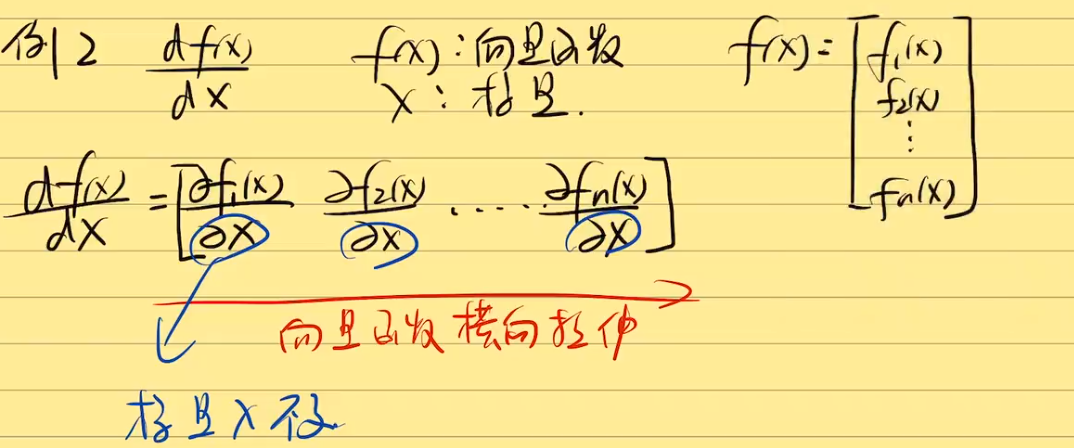 例2 df(x)/dx f(x):向量函数 f(x)=[f₁(x)
x:标量. f₂(x)
⋮
fn(x)]
df(x)/dx=[∂f₁(x)/∂x ∂f₂(x)/∂x ..... ∂fn(x)/∂x]
向量函数横向拉伸
标量x不变